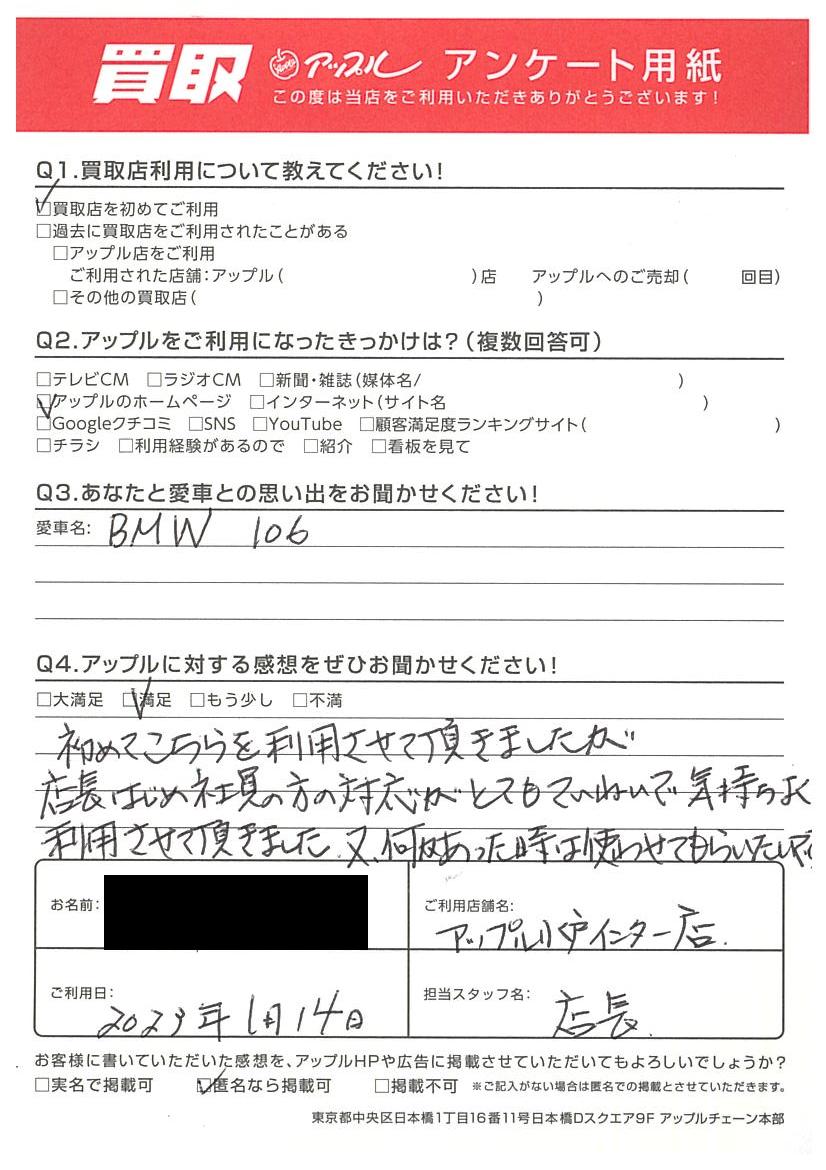 買取 アップル アンケート用紙
この度は当店をご利用いただきありがとうございます!
Q1.買取店利用について教えてください!
☑買取店を初めてご利用
□過去に買取店をご利用されたことがある
□アップル店をご利用
ご利用された店舗:アップル( )店 アップルへのご売却( 回目)
□その他の買取店( )
Q2.アップルをご利用になったきっかけは?(複数回答可)
□テレビCM □ラジオCM □新聞・雑誌(媒体名/ )
☑アップルのホームページ □インターネット(サイト名 )
□Googleクチコミ □SNS □YouTube □顧客満足度ランキングサイト( )
□チラシ □利用経験があるので □紹介 □看板を見て
Q3.あなたと愛車との思い出をお聞かせください!
愛車名: BMW 106
Q4.アップルに対する感想をぜひお聞かせください!
□大満足 ☑満足 □もう少し □不満
初めてこちらを利用させて頂きましたが
店長はじめ社員の方の対応がとてもていねいで気持ちよく
利用させて頂きました。又、何かあった時は使わせてもらいたいで
お名前:
ご利用店舗名:
アップル インター店
ご利用日: 2023年1月14日
担当スタッフ名: 店長
お客様に書いていただいた感想を、アップルHPや広告に掲載させていただいてもよろしいでしょうか?
□実名で掲載可 ☑匿名なら掲載可 □掲載不可 ※ご記入がない場合は匿名での掲載とさせていただきます。
東京都中央区日本橋1丁目16番11号日本橋Dスクエア9F アップルチェーン本部